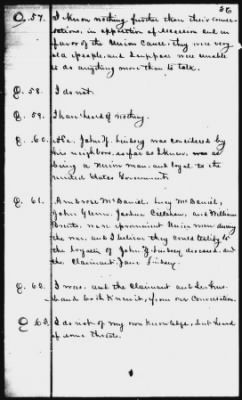 36
Q. 57. I know nothing further than their conver-
sations, in opposition of secession and in
favor of the Union Cause. They were very
old people, and I suppose were unable
to do anything more than to talk.
Q. 58. I do not.
Q. 59. I have heard of nothing.
Q. 60. Mr. John Y. Lindsey was considered by
his neighbors, as far as I know, was as
being a Union man and loyal to the
United States Government.
Q. 61. Ambrose McDaniel, Levy McDaniel,
John Glenn, Joshua Callahan, and William
were prominent Union men during
the war, and I believe they could testify to
the loyalty of John Y. Lindsey deceased, and
the Claimant Jane Lindsey.
Q. 62. I was, and the Claimant and her hus-
band both knew it, from our Conversation.
Q 63. I do not of my own knowledge, but heard
of some threats.